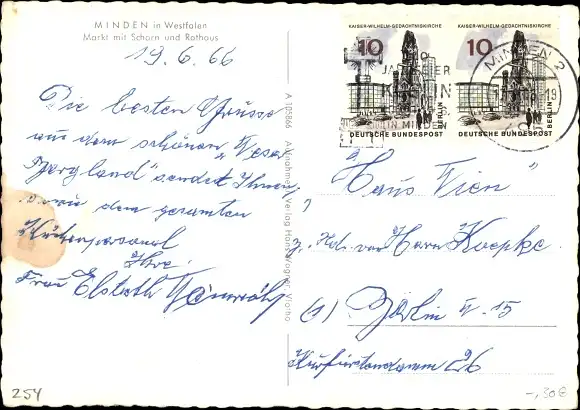 MINDEN in Westfalen
Markt mit Scharn und Rathaus
19.6.66
Die besten Grüsse
aus dem schönen "Weser
Bergland" sendet Ihnen
sowie dem gesamten
Küchenpersonal
Ihre
Frau Elsbeth
A 105866 Aufnahme: Verlag Hans Wagner, Vlotho
KAISER-WILHELM-GEDÄCHTNISKIRCHE
10
BERLIN
DEUTSCHE BUNDESPOST
KAISER-WILHELM-GEDÄCHTNISKIRCHE
10
BERLIN
DEUTSCHE BUNDESPOST
MINDEN 2
19
IN MINDEN
"Haus Wien"
z. Hd. von Herrn Koepke
(1) Berlin W. 15
Kurfürstendamm 26
254
-,30 €